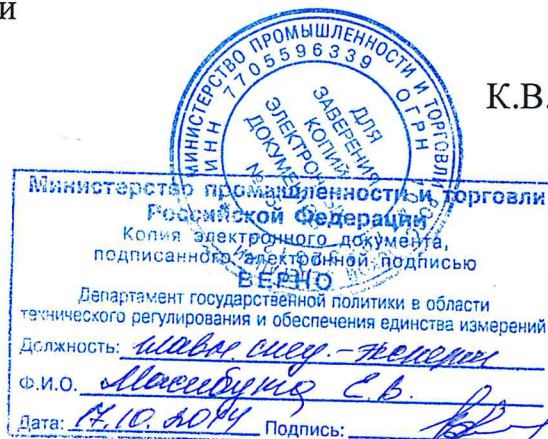 и
К.В.
МИНИСТЕРСТВО ПРОМЫШЛЕННОСТИ И ТОРГОВЛИ
ИНН 7705596339 ОГРН
ДЛЯ
ЗАВЕРЕНИЯ
КОПИЙ
Министерство промышленности и торговли
Российской Федерации
Копия электронного документа,
подписанного электронной подписью
ВЕРНО
Департамент государственной политики в области
технического регулирования и обеспечения единства измерений
Должность: главн. спец. - эксперт
Ф.И.О. Е.В.
Дата: 17.10.2014 Подпись: